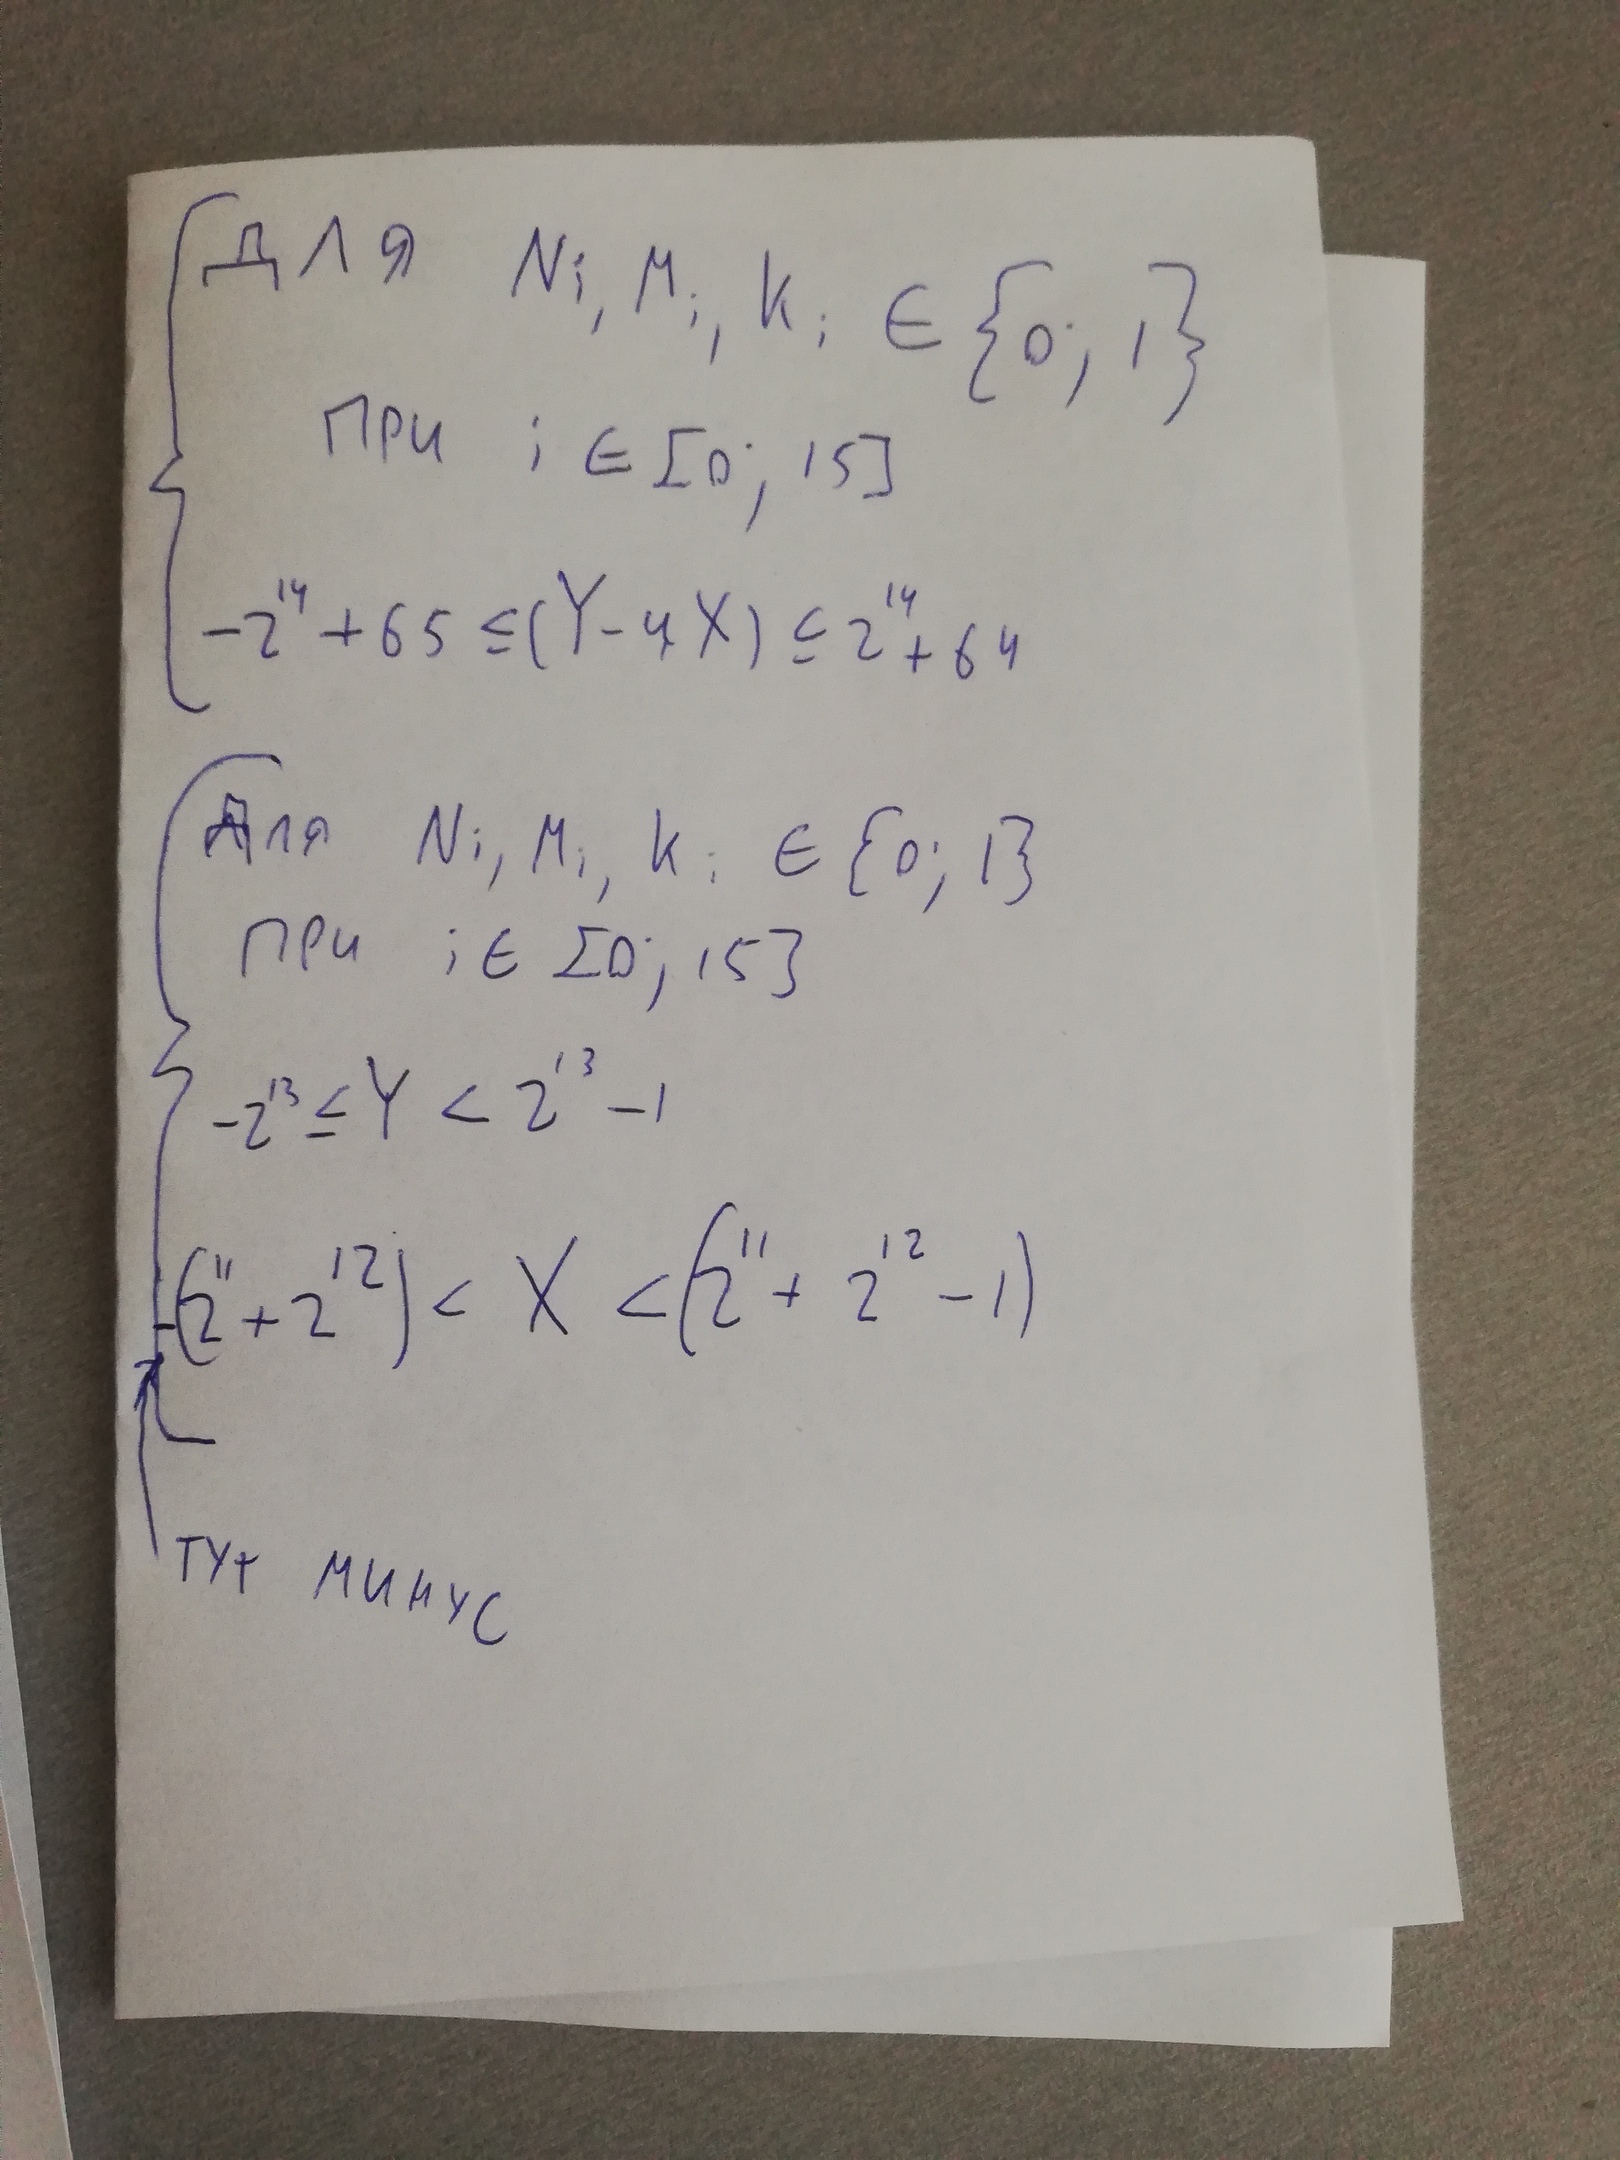 Для Nᵢ, Mᵢ, kᵢ ∈ {0; 1}
при i ∈ [0; 15]
-2¹⁴ + 65 ≤ (Y - 4X) ≤ 2¹⁴ + 64
Для Nᵢ, Mᵢ, kᵢ ∈ {0; 1}
при i ∈ [0; 15]
-2¹³ ≤ Y < 2¹³ - 1
-(2¹¹ + 2¹²) < X < (2¹¹ + 2¹² - 1)
тут минус